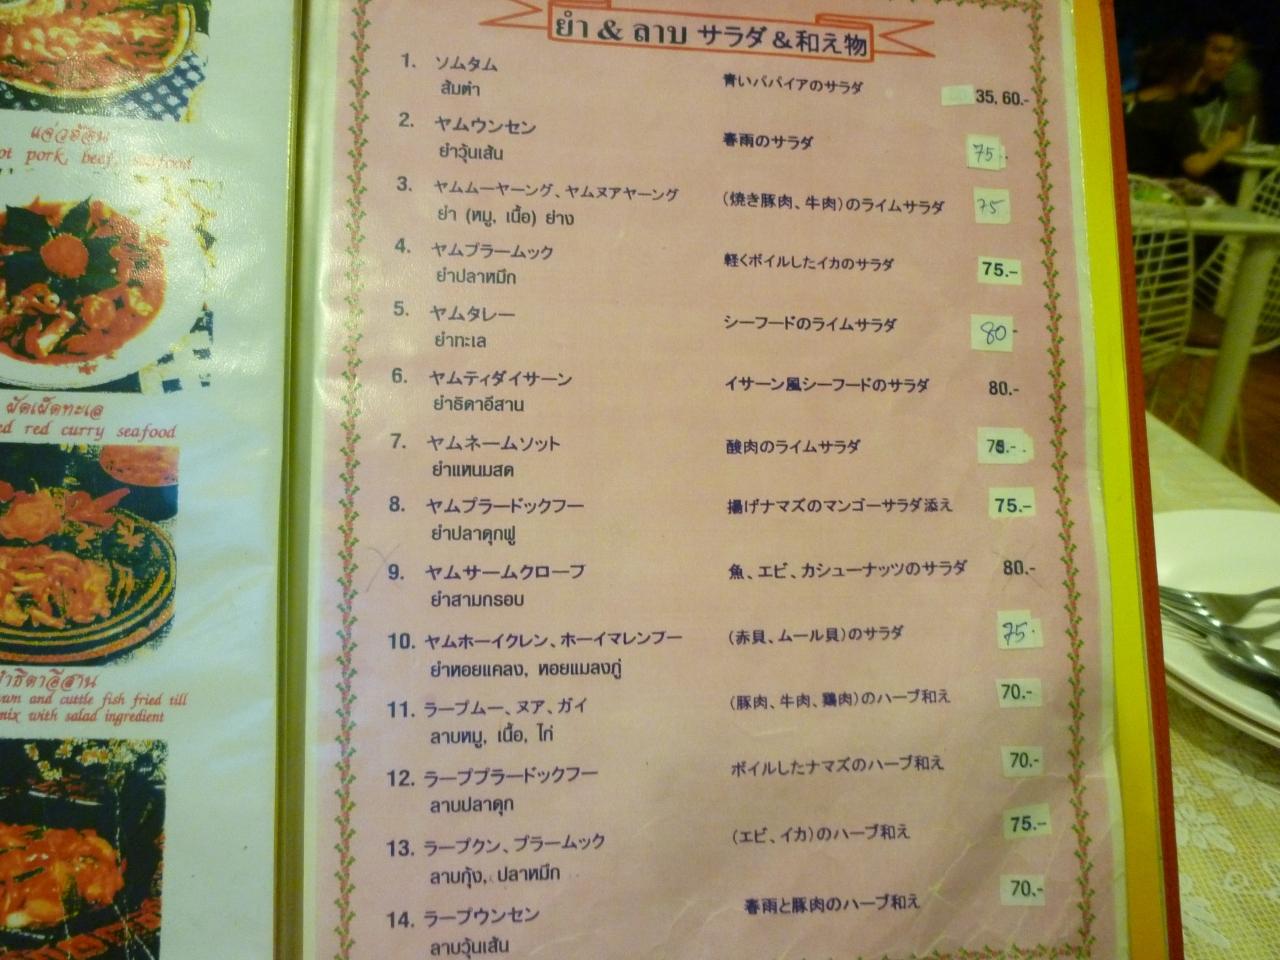 แจ่วฮ้อน
ot pork, beef, seafood
ผัดเผ็ดทะเล
ed red curry seafood
ยำธิดาอีสาน
and cuttle fish fried till
mix with salad ingredient
ยำ & ลาบ サラダ&和え物
1. ソムタム 青いパパイアのサラダ 35, 60.-
ส้มตำ
2. ヤムウンセン 春雨のサラダ 75.-
ยำวุ้นเส้น
3. ヤムムーヤーング、ヤムヌアヤーング (焼き豚肉、牛肉)のライムサラダ 75
ยำ (หมู, เนื้อ) ย่าง
4. ヤムプラームック 軽くボイルしたイカのサラダ 75.-
ยำปลาหมึก
5. ヤムタレー シーフードのライムサラダ 80-
ยำทะเล
6. ヤムティダイサーン イサーン風シーフードのサラダ 80.-
ยำธิดาอีสาน
7. ヤムネームソット 酸肉のライムサラダ
ยำแหนมสด
8. ヤムプラードックフー 揚げナマズのマンゴーサラダ添え 75.-
ยำปลาดุกฟู
9. ヤムサームクローブ 魚、エビ、カシューナッツのサラダ 80.-
ยำสามกรอบ
10. ヤムホーイクレン、ホーイマレンプー (赤貝、ムール貝)のサラダ 75.
ยำหอยแคลง, หอยแมลงภู่
11. ラープムー、ヌア、ガイ (豚肉、牛肉、鶏肉)のハーブ和え 70.-
ลาบหมู, เนื้อ, ไก่
12. ラーププラードックフー ボイルしたナマズのハーブ和え 70.-
ลาบปลาดุก
13. ラープクン、プラームック (エビ、イカ)のハーブ和え 75.-
ลาบกุ้ง, ปลาหมึก
14. ラープウンセン 春雨と豚肉のハーブ和え 70.-
ลาบวุ้นเส้น